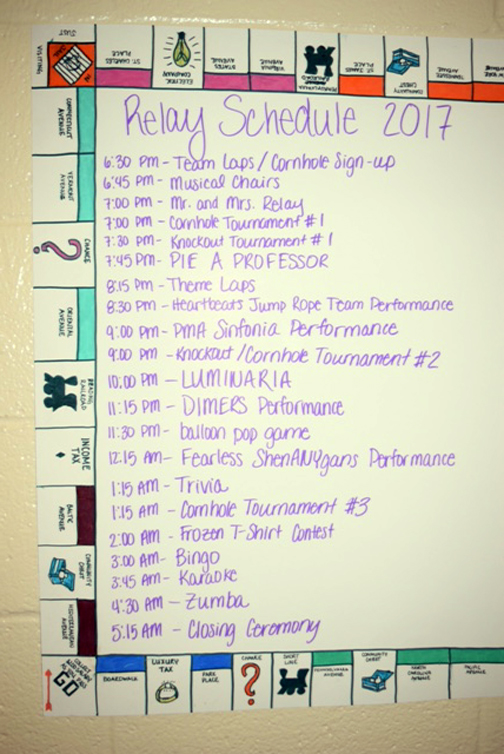 Relay Schedule 2017
6:30 PM - Team Laps / Cornhole Sign-up
6:45 PM - Musical Chairs
7:00 PM - Mr. and Mrs. Relay
7:00 PM - Cornhole Tournament #1
7:30 PM - Knockout Tournament #1
7:45 PM - PIE A PROFESSOR
8:15 PM - Theme Laps
8:30 PM - Heartbeats Jump Rope Team Performance
9:00 PM - PMA Sinfonia Performance
9:00 PM - Knockout / Cornhole Tournament #2
10:00 PM - LUMINARIA
11:15 PM - DIMERS Performance
11:30 PM - balloon pop game
12:15 AM - Fearless ShenANYgans Performance
1:15 AM - Trivia
1:15 AM - Cornhole Tournament #3
2:00 AM - Frozen T-Shirt Contest
3:00 AM - Bingo
3:45 AM - Karaoke
4:30 AM - Zumba
5:15 AM - Closing Ceremony
JUST
VISITING
IN
JAIL
ST. CHARLES
PLACE
ELECTRIC
COMPANY
STATES
AVENUE
VIRGINIA
AVENUE
PENNSYLVANIA
RAILROAD
ST. JAMES
PLACE
COMMUNITY
CHEST
TENNESSEE
AVENUE
CONNECTICUT
AVENUE
VERMONT
AVENUE
CHANCE
?
ORIENTAL
AVENUE
READING
RAILROAD
INCOME
TAX
BALTIC
AVENUE
COMMUNITY
CHEST
MEDITERRANEAN
AVENUE
COLLECT
GO
BOARDWALK
LUXURY
TAX
PARK
PLACE
CHANCE
?
SHORT
LINE
PENNSYLVANIA
AVENUE
COMMUNITY
CHEST
NORTH
CAROLINA
AVENUE
PACIFIC
AVENUE